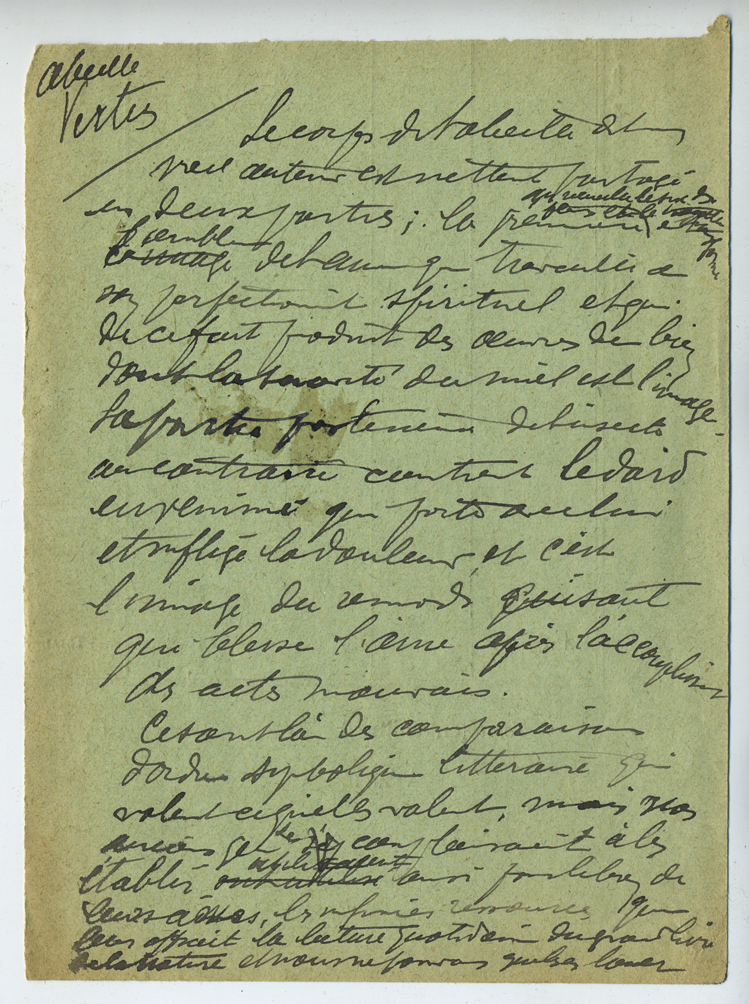 abeille
Vertus
Le corps de l'abeille de
vieil auteur est nettement partagé
en deux parties ; la première
l'emblème
de l'âme qui travaille à
son perfectiont spirituel et qui
de ce fait produit des œuvres de bien
dont la suavité du miel est l'image.
La partie postérieure de l'insecte
au contraire contient le dard
envenimé qui porte avec lui
et inflige la douleur, et c'est
l'image du remords cuisant
qui blesse l'âme après l'accomplissement
des actes mauvais.
Ce sont là des comparaisons
d'ordre symbolique littéraire qui
valent ce qu'elles valent, mais nos
anciens se complaisaient à les
établir ainsi pour le bien de
leurs âmes, les infinies ressources que
leur offrait la lecture quotidienne du grand livre
de la nature et nous ne pouvons que les louer